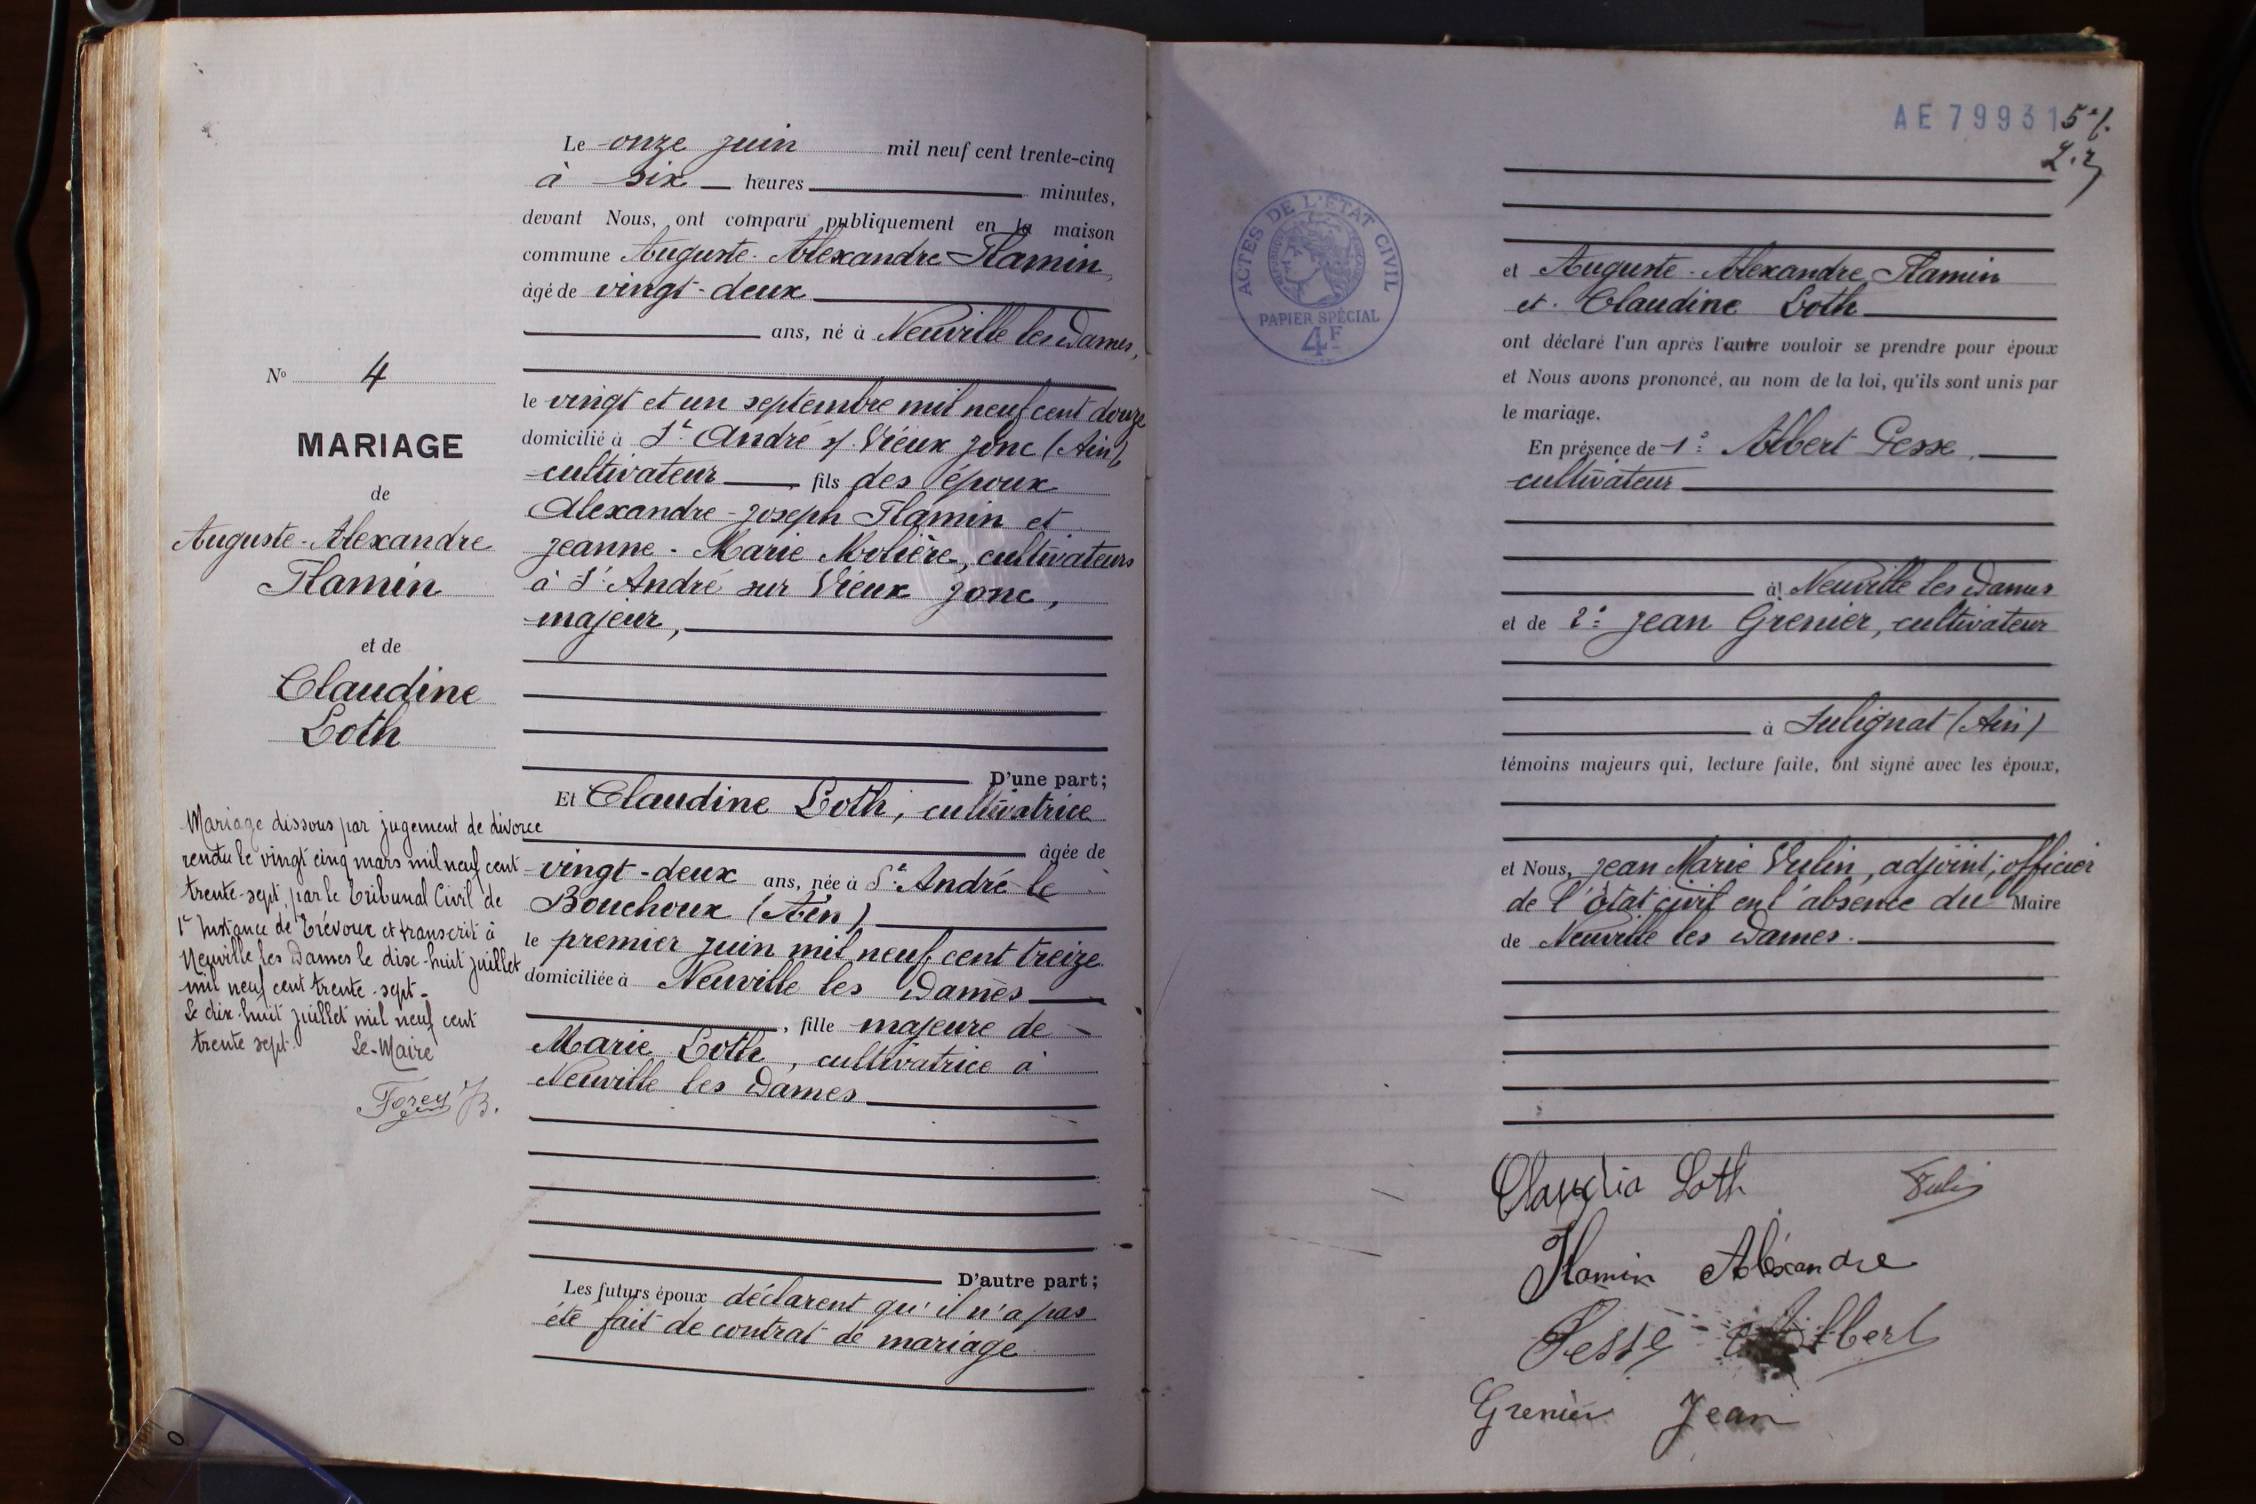 N° 4
MARIAGE
de
Auguste-Alexandre
Flamin
et de
Claudine
Loth
Mariage dissous par jugement de divorce
rendu le vingt cinq mars mil neuf cent
trente-sept, par le Tribunal Civil de
1re Instance de Trévoux et transcrit à
Neuville les Dames le dix-huit juillet
mil neuf cent trente-sept-
Le dix-huit juillet mil neuf cent
trente sept. Le Maire
Le onze juin mil neuf cent trente-cinq
à six heures minutes,
devant Nous, ont comparu publiquement en la maison
commune Auguste-Alexandre Flamin,
âgé de vingt-deux
ans, né à Neuville les Dames,
le vingt et un septembre mil neuf cent douze
domicilié à St André s/ Vieux Jonc (Ain),
cultivateur fils des époux
Alexandre-Joseph Flamin et
Jeanne-Marie Molière, cultivateurs
à St André sur Vieux Jonc,
majeur,
D'une part;
Et Claudine Loth, cultivatrice
âgée de
vingt-deux ans, née à St André le
Bouchoux (Ain)
le premier juin mil neuf cent treize
domiciliée à Neuville les Dames
, fille majeure de
Marie Loth, cultivatrice à
Neuville les Dames
D'autre part;
Les futurs époux déclarent qu'il n'a pas
été fait de contrat de mariage
AE 79931
ACTES DE L'ÉTAT CIVIL
PAPIER SPÉCIAL
4F
et Auguste-Alexandre Flamin
et Claudine Loth
ont déclaré l'un après l'autre vouloir se prendre pour époux
et Nous avons prononcé, au nom de la loi, qu'ils sont unis par
le mariage.
En présence de 1°: Albert Pesse,
cultivateur
à Neuville les Dames
et de 2°: Jean Grenier, cultivateur
à Sulignat (Ain)
témoins majeurs qui, lecture faite, ont signé avec les époux,
et Nous, Jean Marie Vulin, adjoint, officier
de l'état civil en l'absence du Maire
de Neuville les Dames.
Claudia Loth Vulin
Flamin Aléxandre
Pesse Albert
Grenier Jean